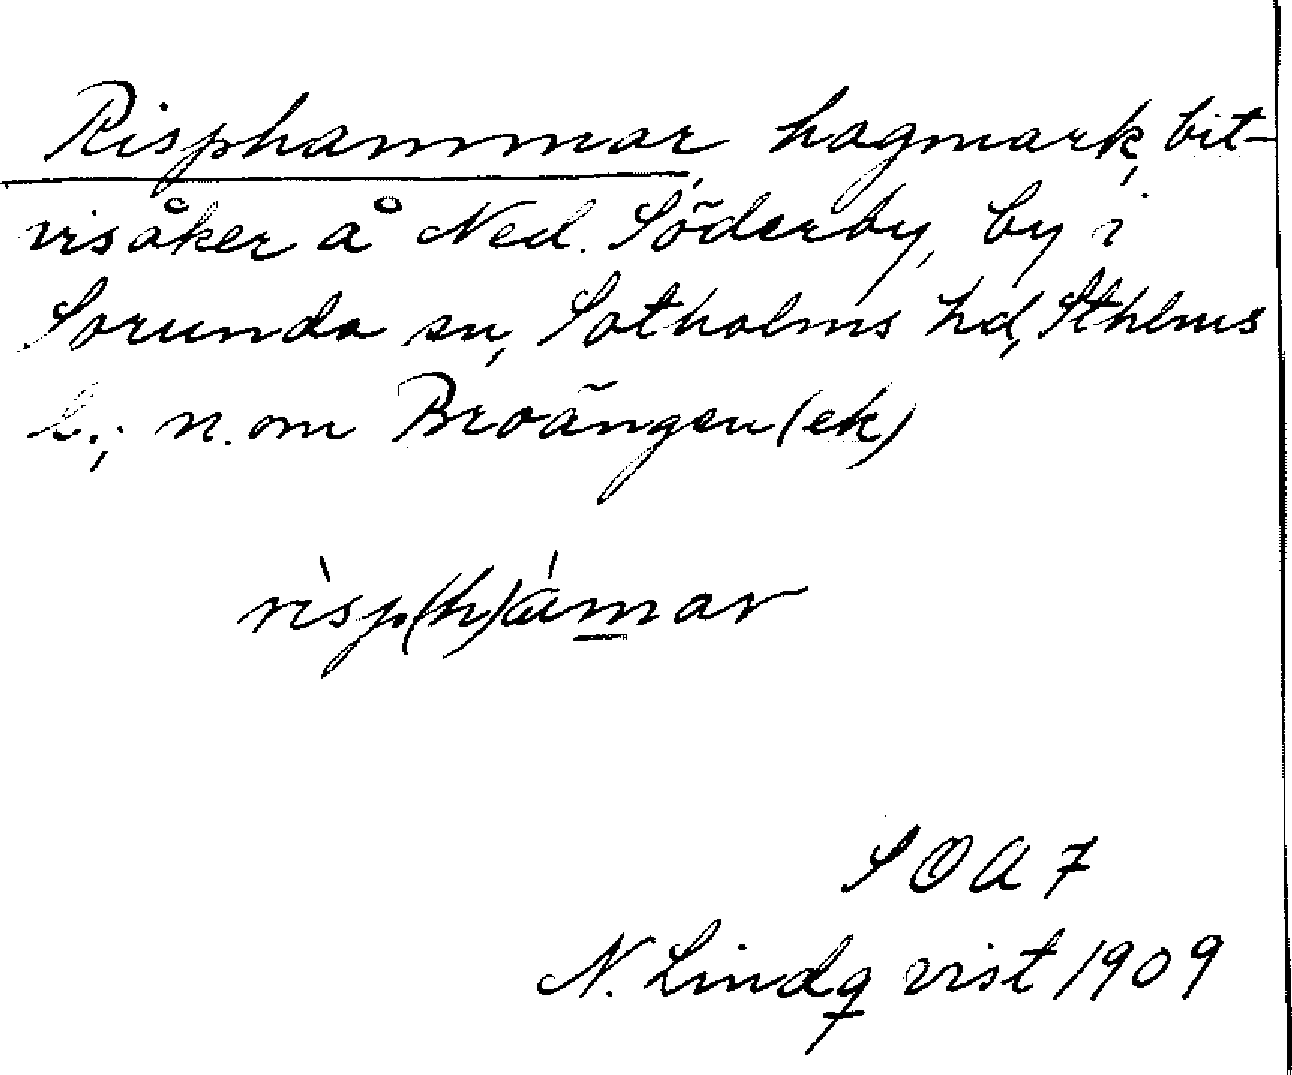 Risphammar, hagmark, bit-
vis åker å Ned. Söderby, by i
Sorunda sn, Sotholms hd, Sthlms
l.; n. om Broängen (ek)
rìsp(h)ámar
SOA 7
N. Lindqvist 1909